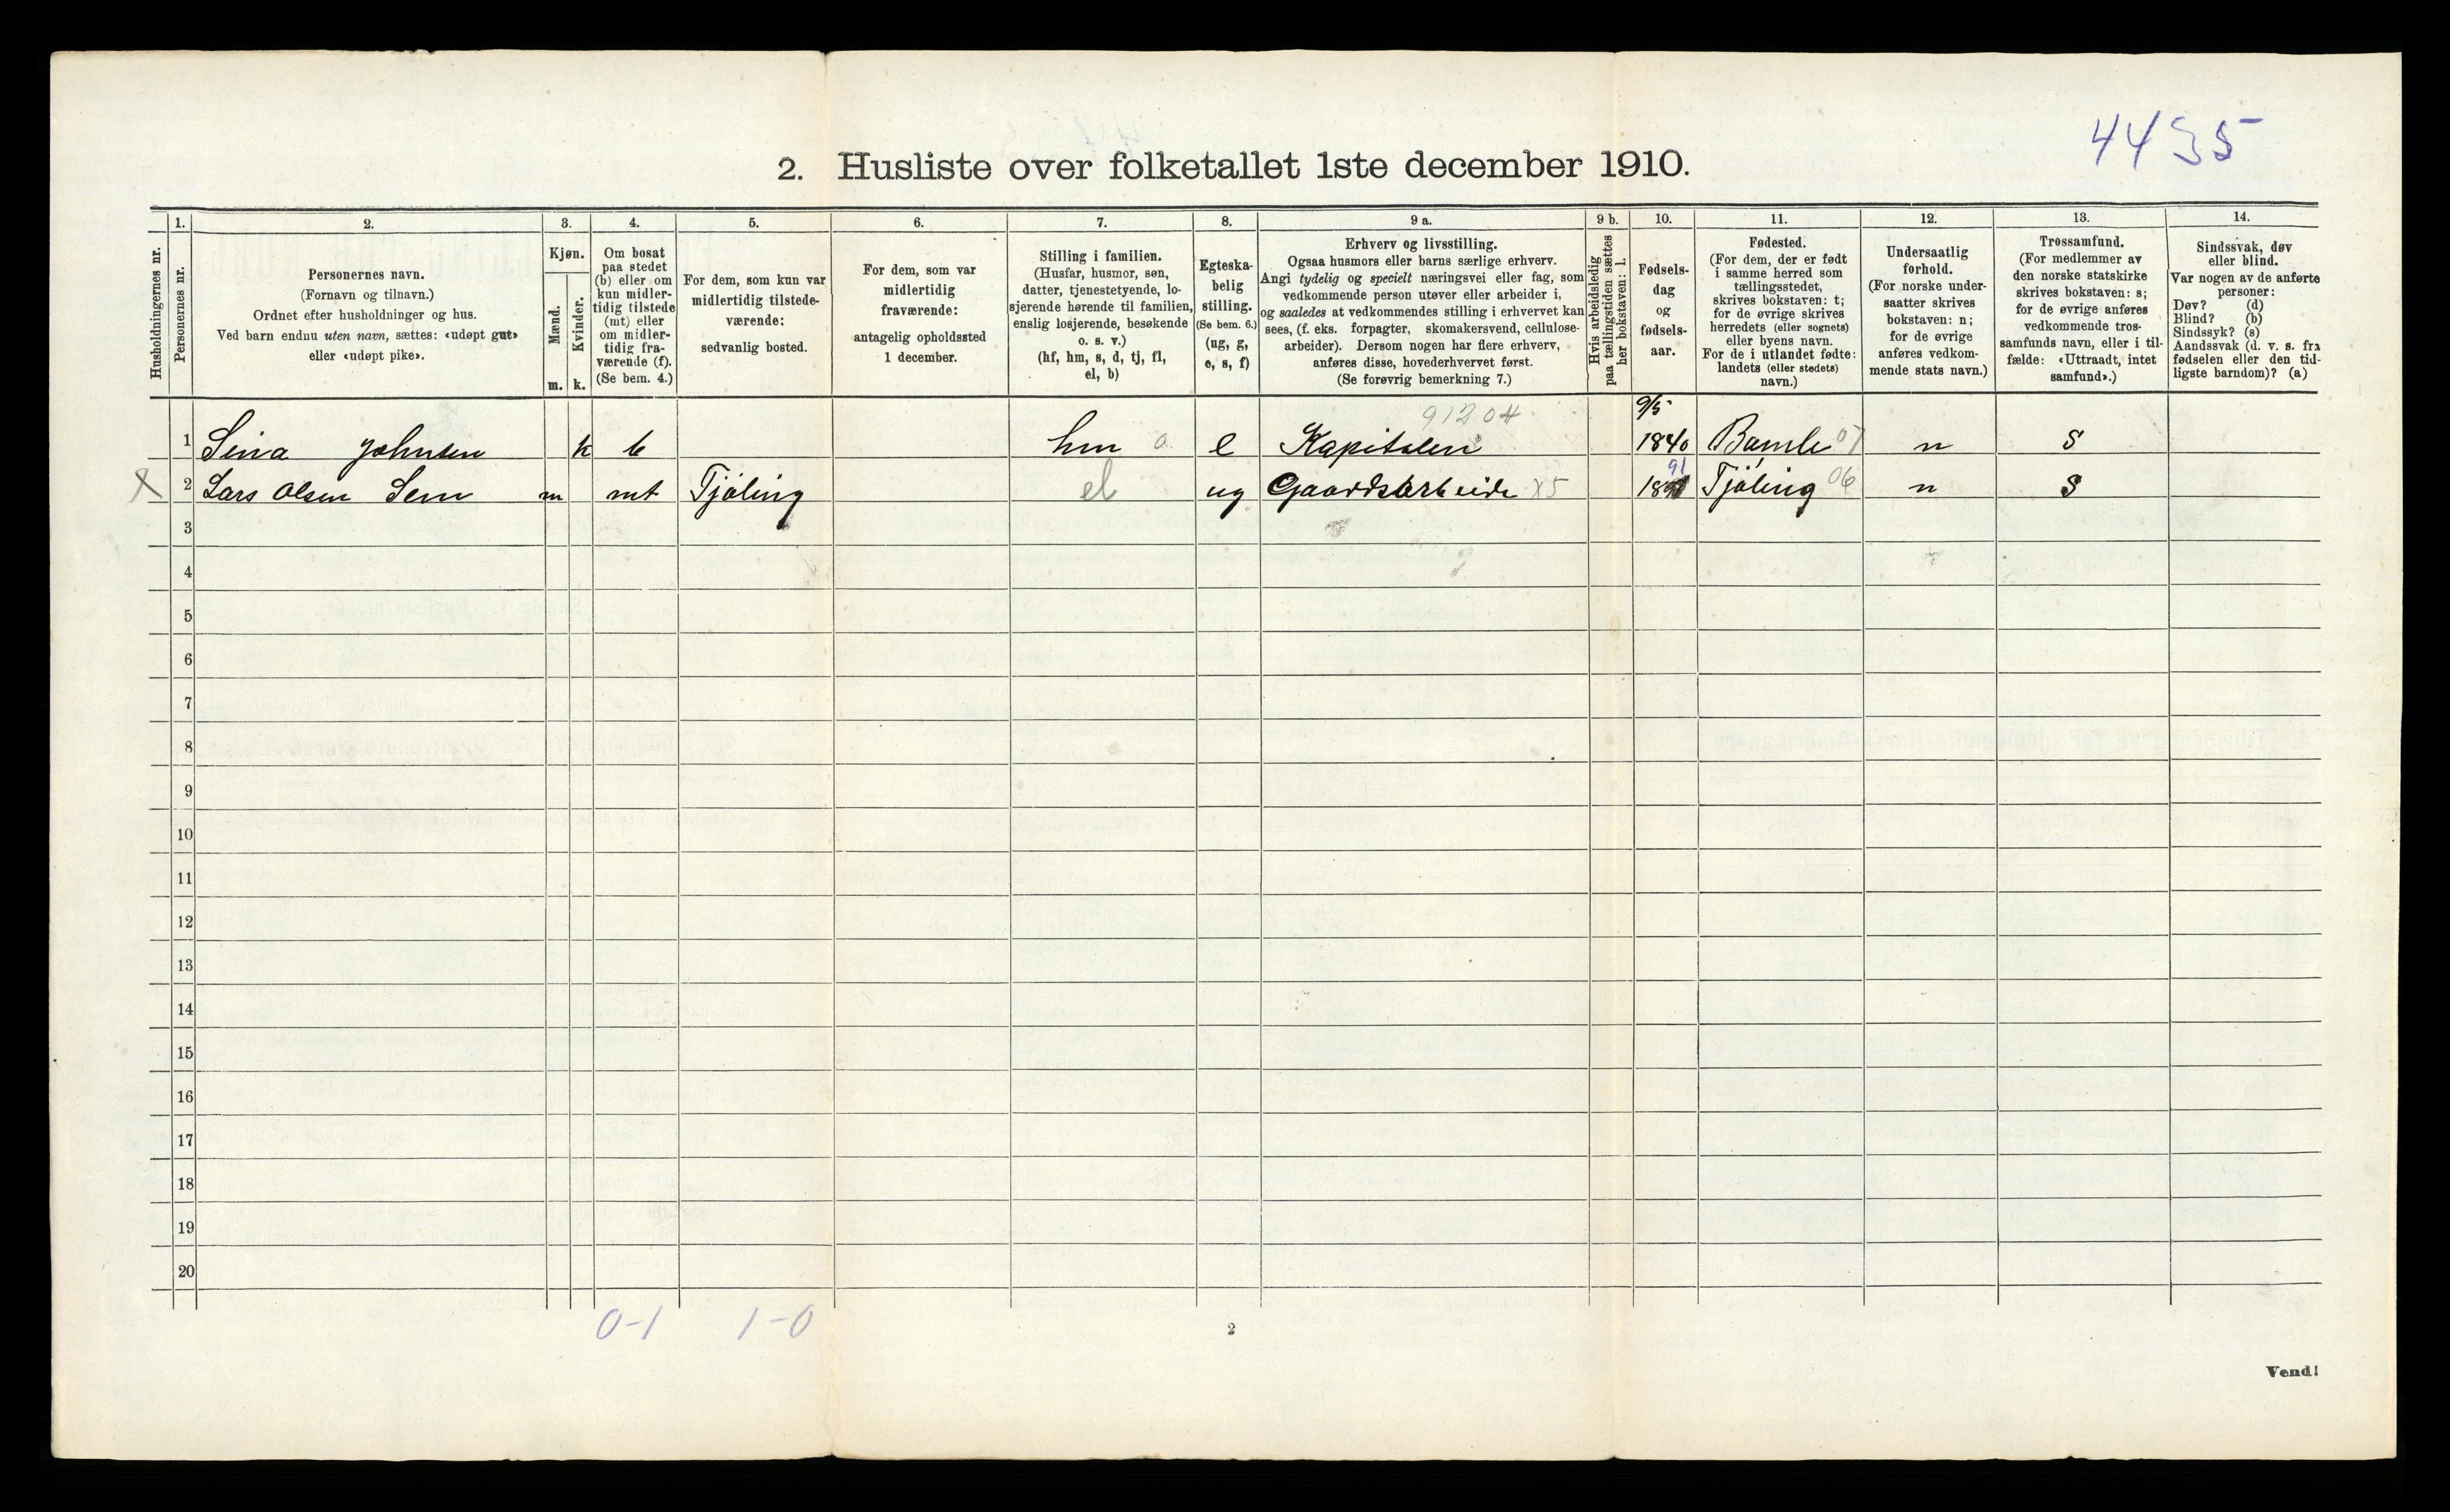 4435
2. Husliste over folketallet 1ste december 1910.
Husholdningernes nr.
1.
Personernes nr.
2.
Personernes navn.
(Fornavn og tilnavn.)
Ordnet efter husholdninger og hus.
Ved barn endnu uten navn, sættes: «udøpt gut»
eller «udøpt pike».
3.
Kjøn.
Mænd.
m.
Kvinder.
k.
4.
Om bosat
paa stedet
(b) eller om
kun midler-
tidig tilstede
(mt) eller
om midler-
tidig fra-
værende (f).
(Se bem. 4.)
5.
For dem, som kun var
midlertidig tilstede-
værende:
sedvanlig bosted.
6.
For dem, som var
midlertidig
fraværende:
antagelig opholdssted
1 december.
7.
Stilling i familien.
(Husfar, husmor, søn,
datter, tjenestetyende, lo-
sjerende hørende til familien,
enslig losjerende, besøkende
o. s. v.)
(hf, hm, s, d, tj, fl,
el, b)
8.
Egteska-
belig
stilling.
(Se bem. 6.)
(ug, g,
e, s, f)
9 a.
Erhverv og livsstilling.
Ogsaa husmors eller barns særlige erhverv.
Angi tydelig og specielt næringsvei eller fag, som
vedkommende person utøver eller arbeider i,
og saaledes at vedkommendes stilling i erhvervet kan
sees, (f. eks. forpagter, skomakersvend, cellulose-
arbeider). Dersom nogen har flere erhverv,
anføres disse, hovederhvervet først.
(Se forøvrig bemerkning 7.)
9 b.
Hvis arbeidsledig
paa tællingstiden sættes
her bokstaven: l.
10.
Fødsels-
dag
og
fødsels-
aar.
11.
Fødested.
(For dem, der er født
i samme herred som
tællingsstedet,
skrives bokstaven: t;
for de øvrige skrives
herredets (eller sognets)
eller byens navn.
For de i utlandet fødte:
landets (eller stedets)
navn.)
12.
Undersaatlig
forhold.
(For norske under-
saatter skrives
bokstaven: n;
for de øvrige
anføres vedkom-
mende stats navn.)
13.
Trossamfund.
(For medlemmer av
den norske statskirke
skrives bokstaven: s;
for de øvrige anføres
vedkommende tros-
samfunds navn, eller i til-
fælde: «Uttraadt, intet
samfund».)
14.
Sindssvak, døv
eller blind.
Var nogen av de anførte
personer:
Døv? (d)
Blind? (b)
Sindssyk? (s)
Aandssvak (d. v. s. fra
fødselen eller den tid-
ligste barndom)? (a)
91204 9/5
1 Sina Johnsen k b hm 0. e Kapitalen 1840 Bamle 07 n S
X 2 Lars Olsen Sem m mt Tjøling el ug Gaardsarbeide X5 1891 91 Tjøling 06 n S
3
4
5
6
7
8
9
10
11
12
13
14
15
16
17
18
19
20
0-1 1-0
2
Vend!